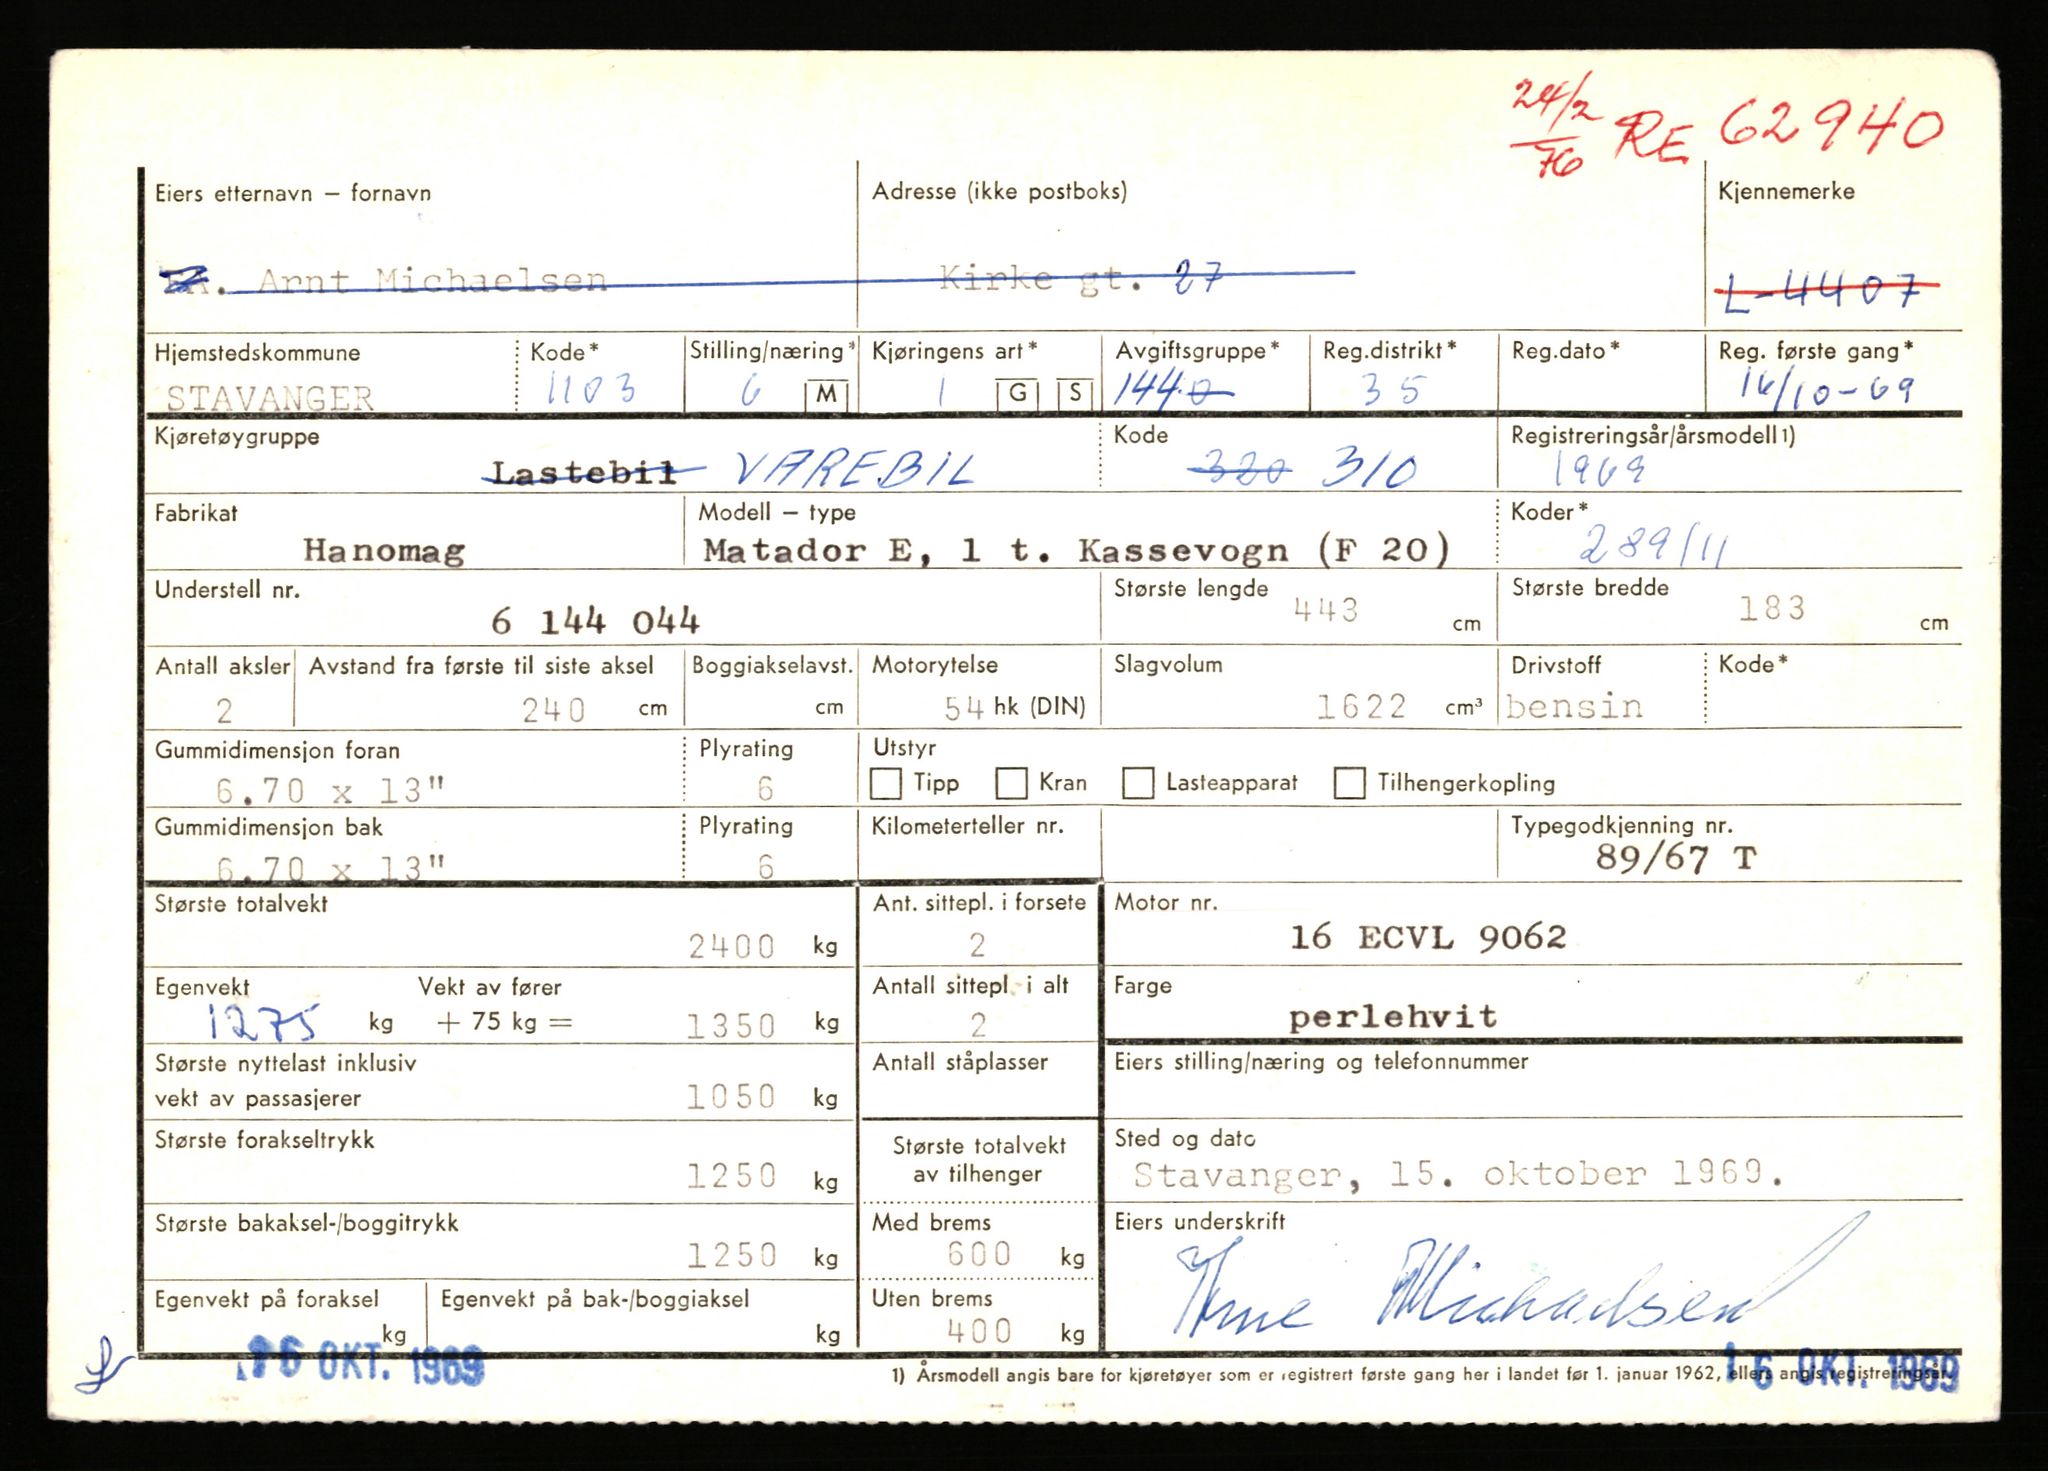 24/2 76 RE 62940
Eiers etternavn – fornavn Adresse (ikke postboks) Kjennemerke
Arnt Michaelsen Kirke gt. 27 L-4407
Hjemstedskommune Kode* Stilling/næring* Kjøringens art* Avgiftsgruppe* Reg.distrikt* Reg.dato* Reg. første gang*
STAVANGER 1103 6 M 1 G S 144.0 35 16/10-69
Kjøretøygruppe Kode Registreringsår/årsmodell1)
Lastebil VAREBIL 320 310 1969
Fabrikat Modell – type Koder*
Hanomag Matador E, 1 t. Kassevogn (F 20) 289/11
Understell nr. Største lengde Største bredde
6 144 044 443 cm 183 cm
Antall aksler Avstand fra første til siste aksel Boggiakselavst. Motorytelse Slagvolum Drivstoff Kode*
2 240 cm cm 54 hk (DIN) 1622 cm³ bensin
Gummidimensjon foran Plyrating Utstyr
6.70 x 13" 6 Tipp Kran Lasteapparat Tilhengerkopling
Gummidimensjon bak Plyrating Kilometerteller nr. Typegodkjenning nr.
6.70 x 13" 6 89/67 T
Største totalvekt Ant. sittepl. i forsete Motor nr.
2400 kg 2 16 ECVL 9062
Egenvekt Vekt av fører Antall sittepl. i alt Farge
1275 kg + 75 kg = 1350 kg 2 perlehvit
Største nyttelast inklusiv Antall ståplasser Eiers stilling/næring og telefonnummer
vekt av passasjerer 1050 kg
Største forakseltrykk Største totalvekt Sted og dato
1250 kg av tilhenger Stavanger, 15. oktober 1969.
Største bakaksel-/boggitrykk Med brems Eiers underskrift
1250 kg 600 kg Arne Michaelsen
Egenvekt på foraksel Egenvekt på bak-/boggiaksel Uten brems
kg kg 400 kg
16 OKT. 1969 1) Årsmodell angis bare for kjøretøyer som er registrert første gang her i landet før 1. januar 1962, ellers angis registreringsår. 16 OKT. 1969